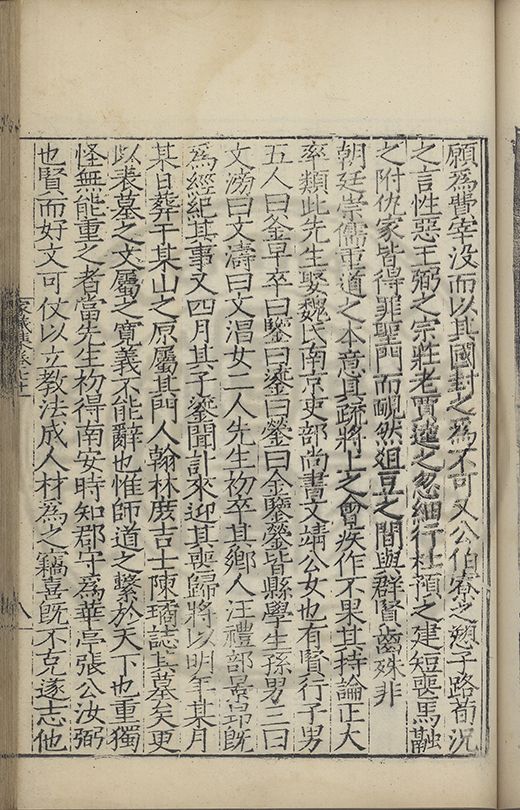 願為費宰沒而以其國封之為不可又公伯寮之愬子路荀況
之言性惡王弼之宗莊老賈逵之忽細行杜預之建短喪馬融
之附仇家皆得罪聖門而靦然俎豆之間與群賢齒殊非
朝廷崇儒重道之本意具疏將上之會疾作不果其持論正大
率類此先生娶魏氏南京吏部尚書文靖公女也有賢行子男
五人曰釡早卒曰鑒曰鎏曰鎣曰金鑒鎣皆縣學生孫男三曰
文滂曰文濤曰文淐女二人先生初卒其鄉人汪禮部景昻既
為經紀其事又四月其子鎏聞訃來迎其喪歸將以明年某月
某日葬于某山之原屬其門人翰林庶吉士陳璚誌其墓矣更
以表墓之文屬之寛義不能辭也惟師道之繫於天下也重獨
怪無能重之者當先生初得南安時知郡守為華亭張公汝弼
也賢而好文可仗以立教法成人材為之竊喜既不克遂志他